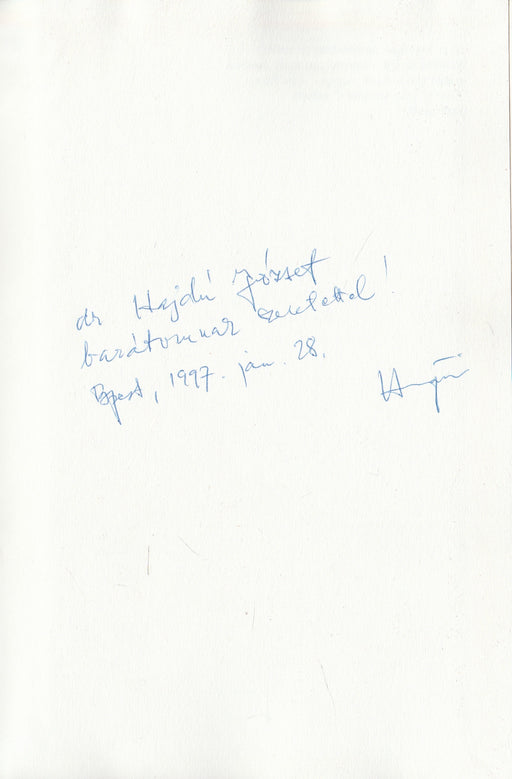 dr Hajdú József
barátomnak szeretettel!
Bpest, 1997. jan. 28.